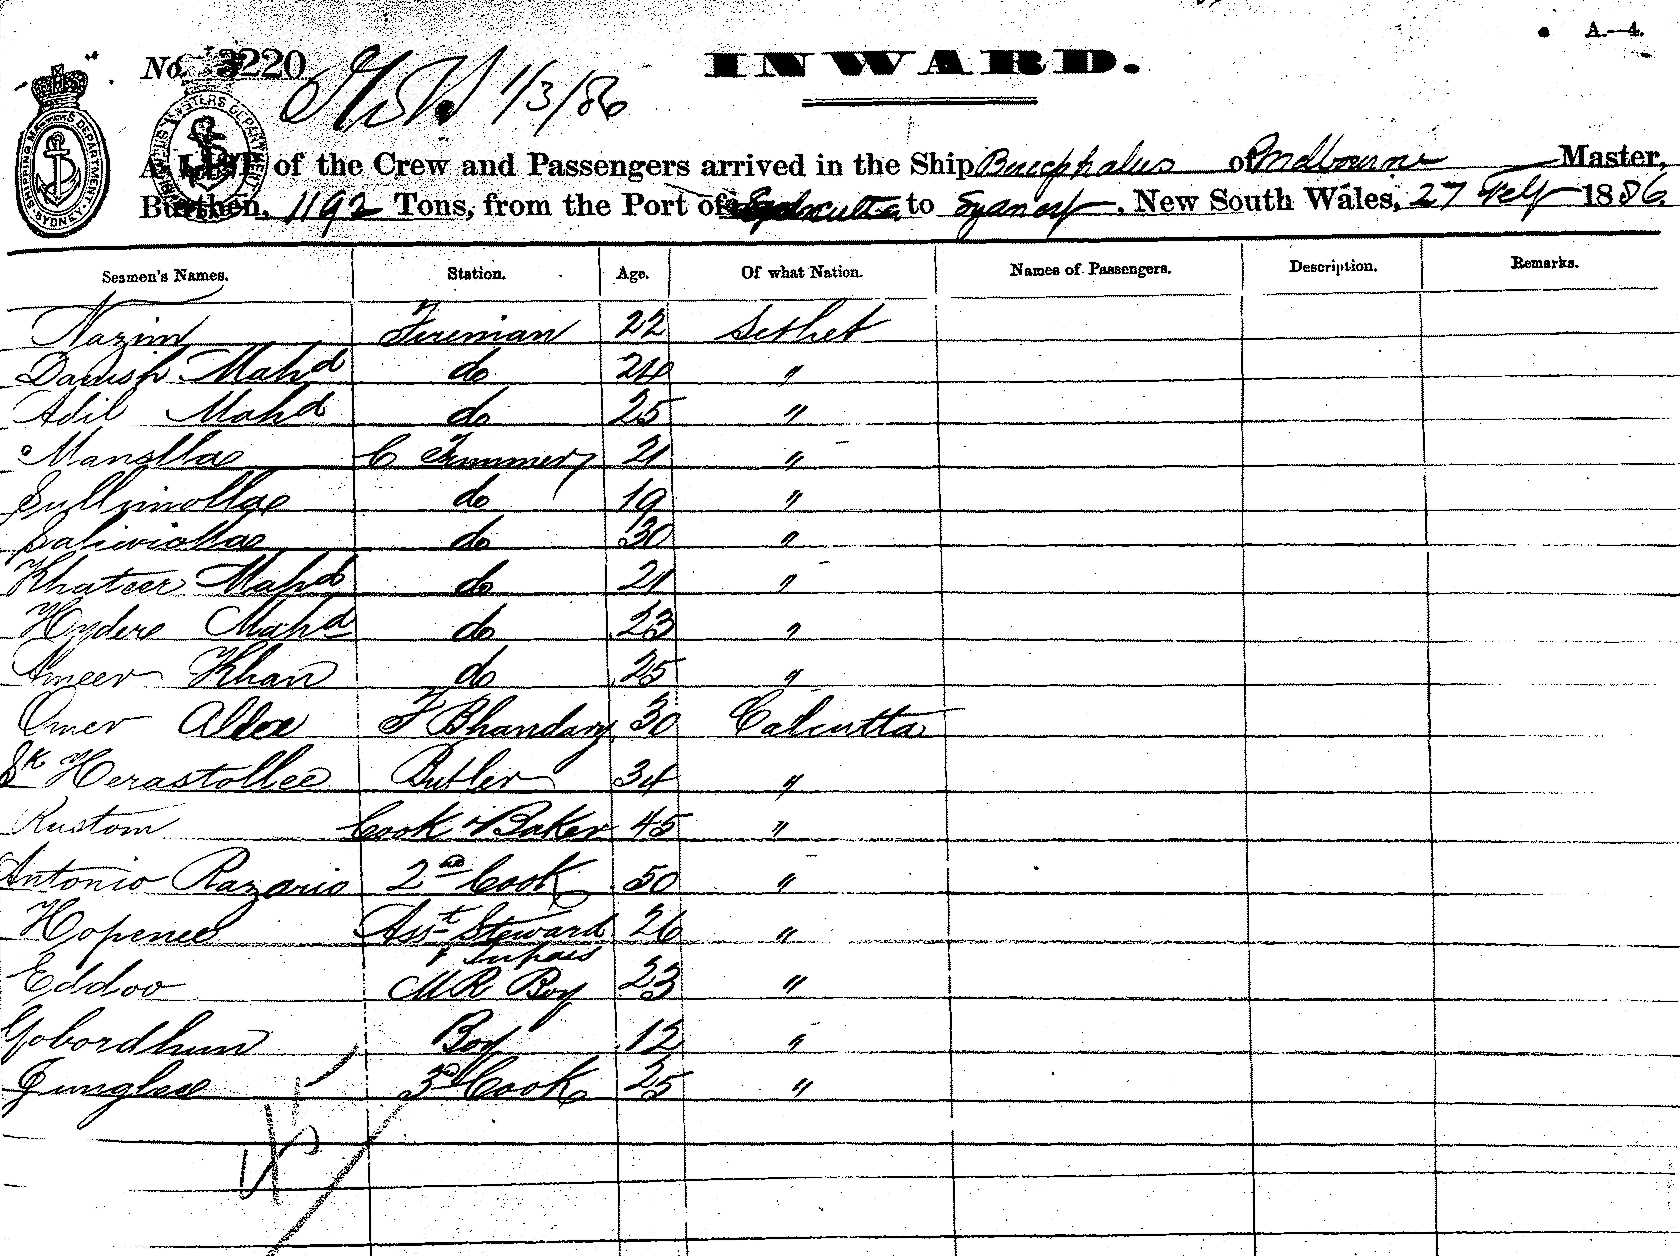 A.—4.
No. 3220
INWARD.
1/3/86
SHIPPING MASTERS DEPARTMENT SYDNEY
A LIST of the Crew and Passengers arrived in the Ship Bucephalus of Melbourne Master,
Burthen, 1192 Tons, from the Port of Calcutta to Sydney, New South Wales, 27 Feby 1886
Seamen's Names. Station. Age. Of what Nation. Names of Passengers. Description. Remarks.
Nazim Fireman 22 Sethet
Danish Mahd do 24 "
Adil Mahd do 25 "
Manollae C Trimmer 21 "
Sullimollae do 19 "
do 30 "
Khateer Mahd do 21 "
Hyder Mahd do 23 "
Ameer Khan do 25 "
Omer Allee F Bhandary 30 Calcutta
Sk Herastollee Butler 34 "
Rustom Cook & Baker 45 "
Antonio Razario 2nd Cook 50 "
Hopenee Asst Steward 26 "
Eddoo MR Boy 23 "
Gobordhun Boy 12 "
Junglee 3rd Cook 25 "